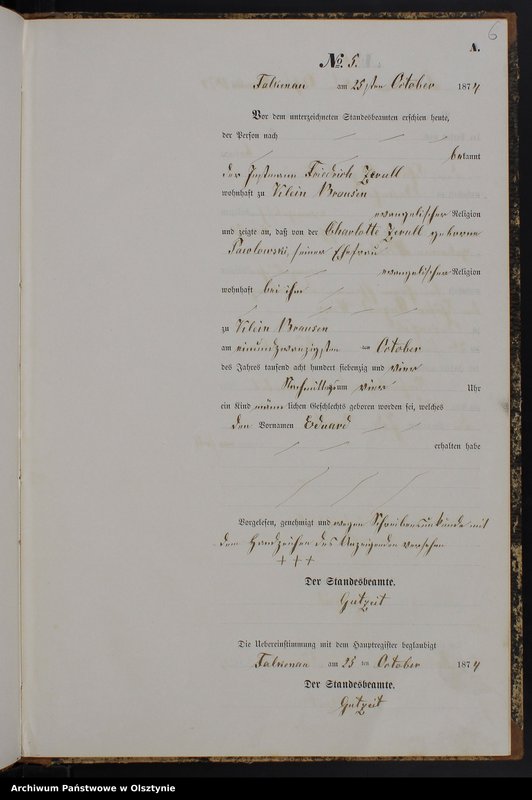 6
A.
No 5.
Falkenau am 25sten October 1874
Vor dem unterzeichneten Standesbeamten erschien heute,
der Person nach
bekannt
der Instmann Friedrich Zerull
wohnhaft zu Klein Brausen
evangelischer Religion
und zeigte an, daß von der Charlotte Zerull geborene
Pawlowski, seiner Ehefrau
evangelischer Religion
wohnhaft bei ihm
zu Klein Brausen
am einundzwanzigsten ten October
des Jahres tausend acht hundert siebenzig und vier
Nachmittags um vier Uhr
ein Kind männlichen Geschlechts geboren worden sei, welches
den Vornamen Eduard
erhalten habe
Vorgelesen, genehmigt und wegen Schreibensunkunde mit
dem Handzeichen des Anzeigenden versehen
+ + +
Der Standesbeamte.
Gutzeit
Die Uebereinstimmung mit dem Hauptregister beglaubigt
Falkenau am 25 ten October 1874
Der Standesbeamte.
Gutzeit
Archiwum Państwowe w Olsztynie